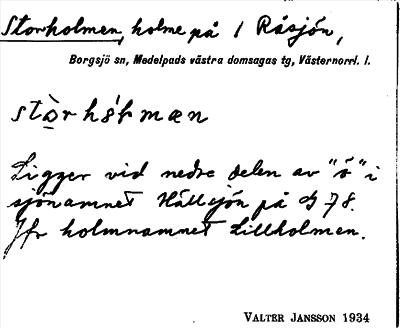 Storholmen, holme på / Råsjön,
Borgsjö sn, Medelpads västra domsagas tg, Västernorrl. l.
Ligger vid nedre delen av "s" i
sjönamnet Hällsjön på G 78.
Jfr holmnamnet Lillholmen.
VALTER JANSSON 1934